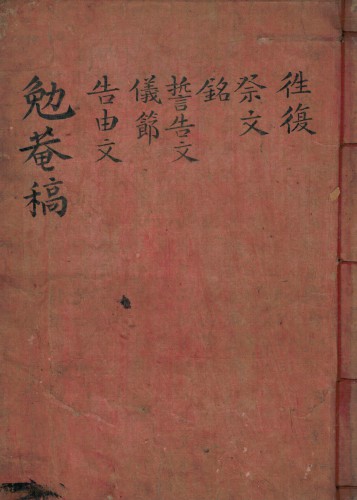 往復
祭文
銘
誓告文
儀節
告由文
勉菴稿